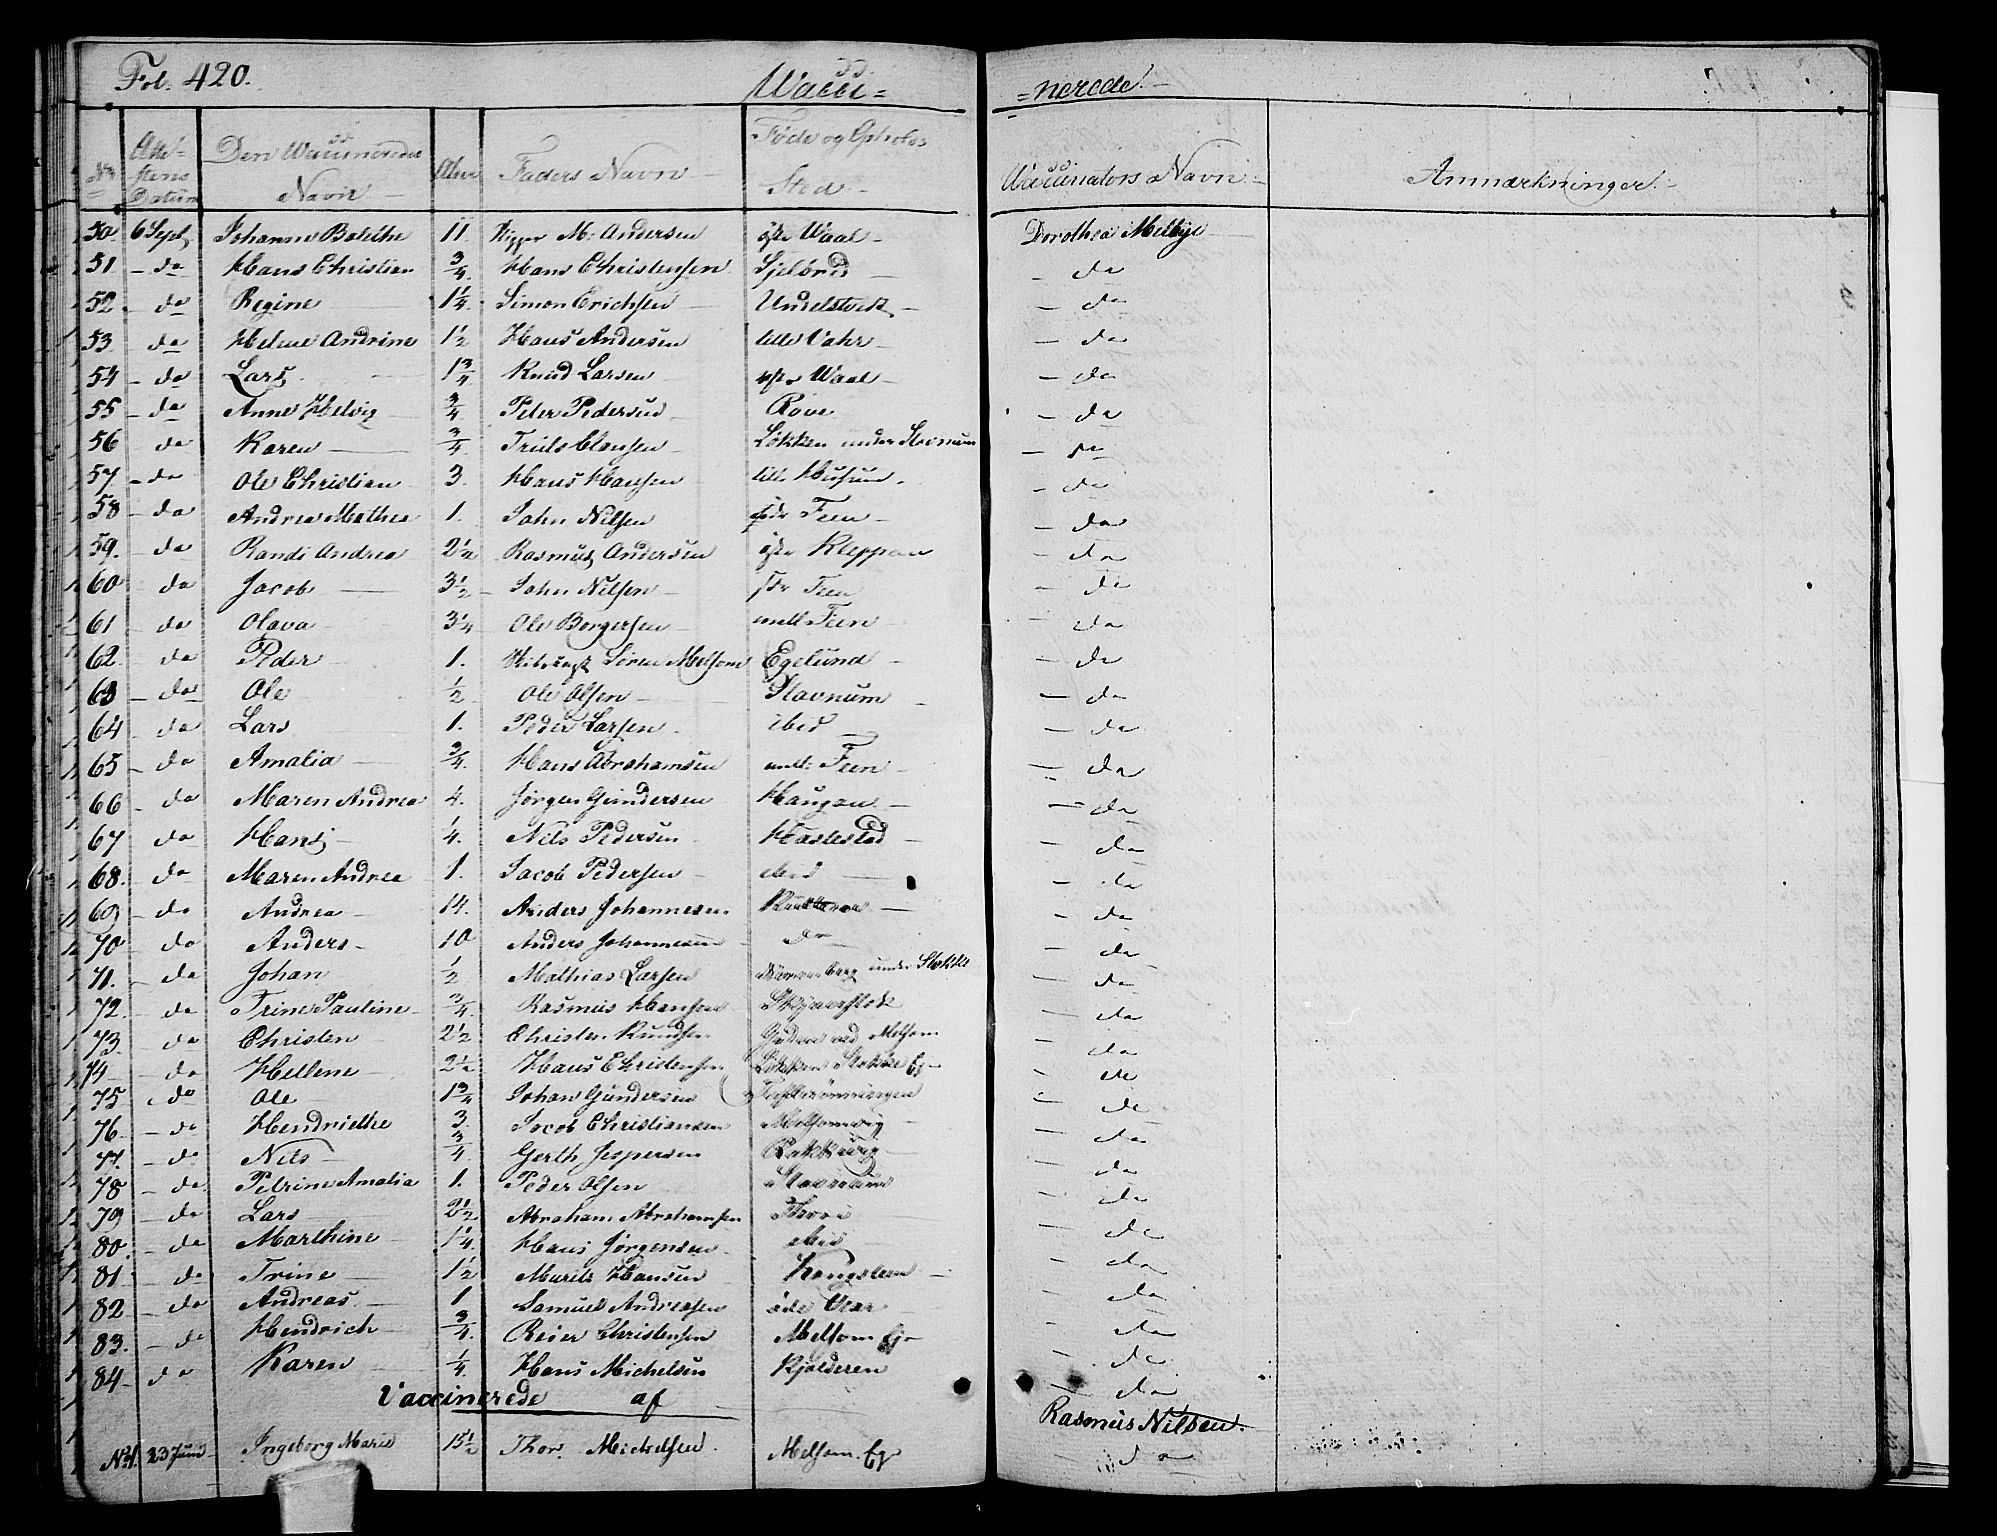 Fol. 420. Wacci= =nerede.
No Atte= stens Datum Den Waccineredes Navn Alder Faders Navn Føde og Opholds Sted Waccinators Navn Anmærkninger.
50. 6 Sept. Johanne Bolethe 11. M. Andersen Waal Dorothea Melbye
51. - do Hans Christian 3/4 Hans Christensen Sjelbred - do
52. - do Regine 1 1/4. Simon Erichsen Undelstvedt - do
53. do Helene Andrine 1 1/2 Hans Andersen lille Vahr - do
54 - do Lars 1 3/4 Knud Larsen Waal - do
55 - do Anne Helvig 3/4 Peter Pedersen Rove - do
56 do Karen 3/4. Truls Clausen Løkken under Stavnum - do
57. - do Ole Christian 3. Hans Hansen lille Husum. - do
58 - do Andrea Mathea 1. John Nilsen Feen - do
59. - do Randi Andrea 2 1/2 Rasmus Andersen Kleppan - do
60 do Jacob 3 1/2 John Nilsen Feen - do
61 - do Olava 3 1/4 Ole Borgersen Feen - do
62. do Peder 1. Søren Melsom Egelund - do
63 - do Ole 1/2 Ole Olsen Stavnum - do
64 - do Lars 1. Peder Larsen ibid - do
65 - do Amalia 3/4. Hans Abrahamsen Feen - do
66 - do Maren Andrea 4. Jørgen Gundersen Haugan - do
67 do Hans 1/4. Nils Pedersen Hastested - do
68. - do Maren Andrea 1. Jacob Pedersen ibid - do
69 - do Andrea 14. Anders Johannesen - do
70 - do Anders 10 Anders Johannesen do - do
71. - do Johan 1/2 Mathias Larsen under Stokke - do
72. - do Trine Pauline 3/4 Rasmus Hansen - do
73. - do Christen 2 1/2 Christen Knudsen ved Melsom - do
74 - do Hellene 2 1/2 Hans Christensen Løkken Stokke Ej - do
75 - do Ole 1 3/4 Johan Gundersen - do
76. - do Hendriethe 3. Jacob Christiansen Melsomvig - do
77. - do Nils 3/4 Gerth Jespersen - do
78 - do Petrine Amalia 1. Peder Olsen Stavnum - do
79 - do Lars 2 1/2 Abraham Abrahamsen - do
80. - do Marthine 1 1/4. Hans Jørgensen ibid - do
81 - do Trine 1 1/2 Hansen - do
82 - do Andreas. 1 Samuel Andreasen - do
83. - do Hendrich 3/4. Reier Christensen Melsom Ej - do
84 - do Karen 1/4. Hans Michelsen Kjolderen - do
Vaccinerede af Rasmus Nilsen.
No 1. 23 Juni Ingeborg Marie 15 1/2 Thor Michelsen. Melsom Ej do